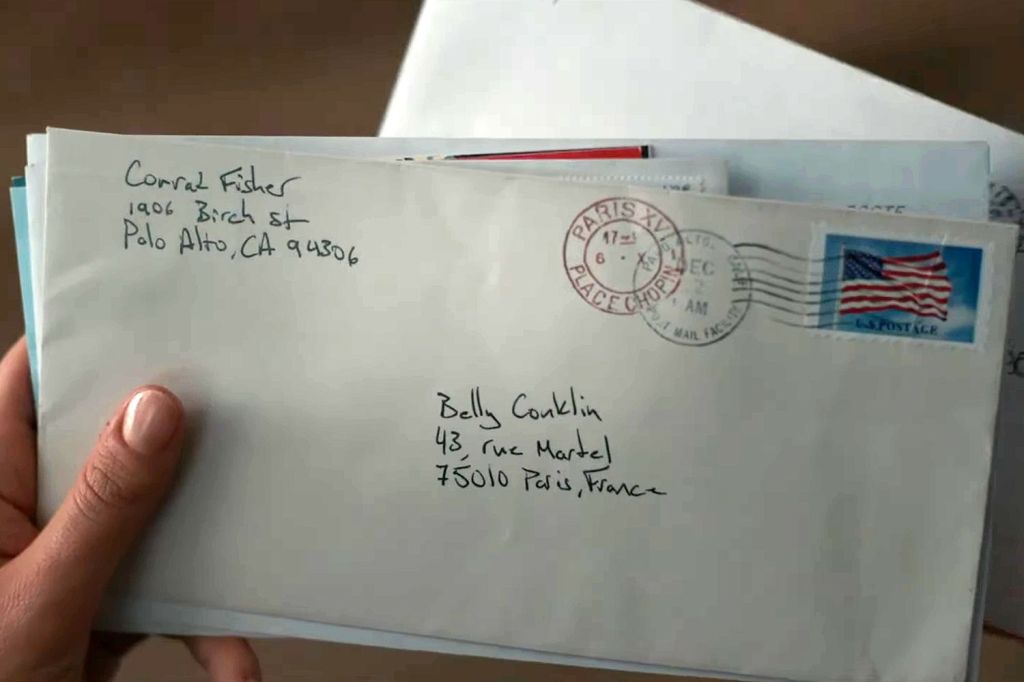 Conrad Fisher
1906 Birch st
Palo Alto, CA 94306
PARIS XVI
17
6 . X
PLACE CHOPIN
DEC
2
AM
MAIL FAC
U.S. POSTAGE
POSTE
Belly Conklin
43, rue Martel
75010 Paris, France